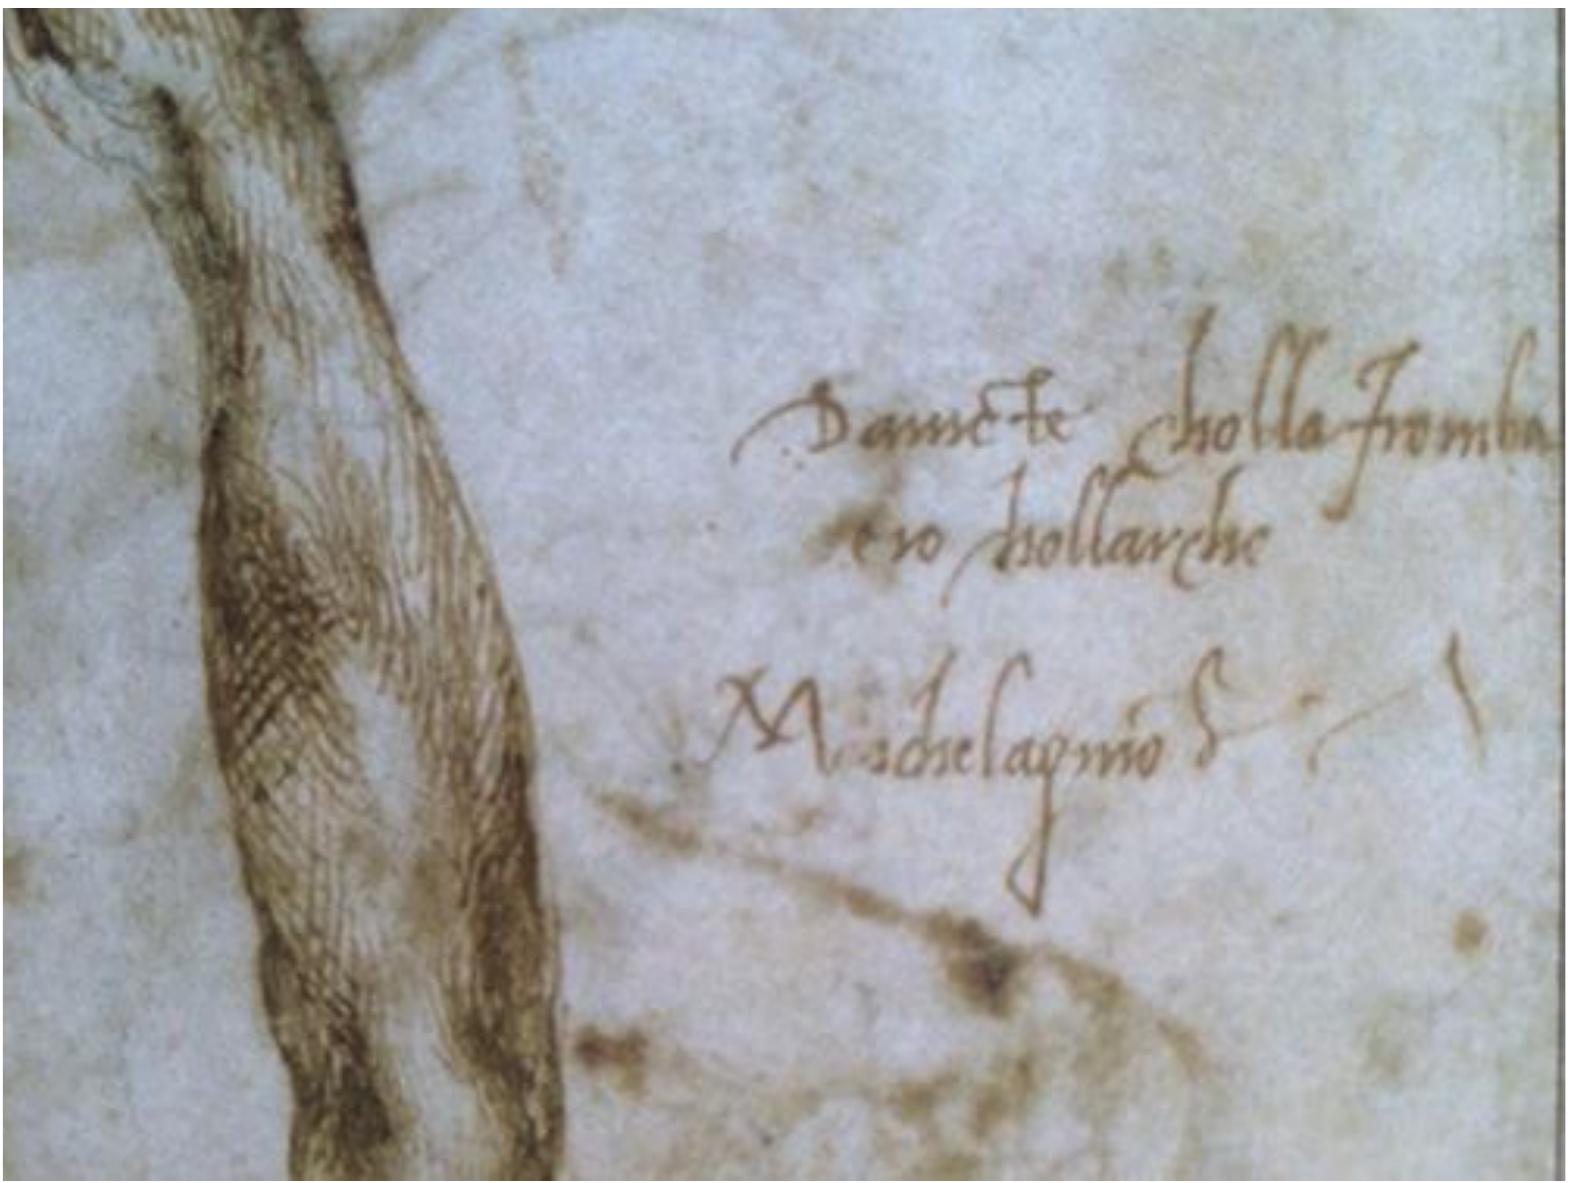 Davicte cholla fromba
e io chollarcho
Michelagniolo